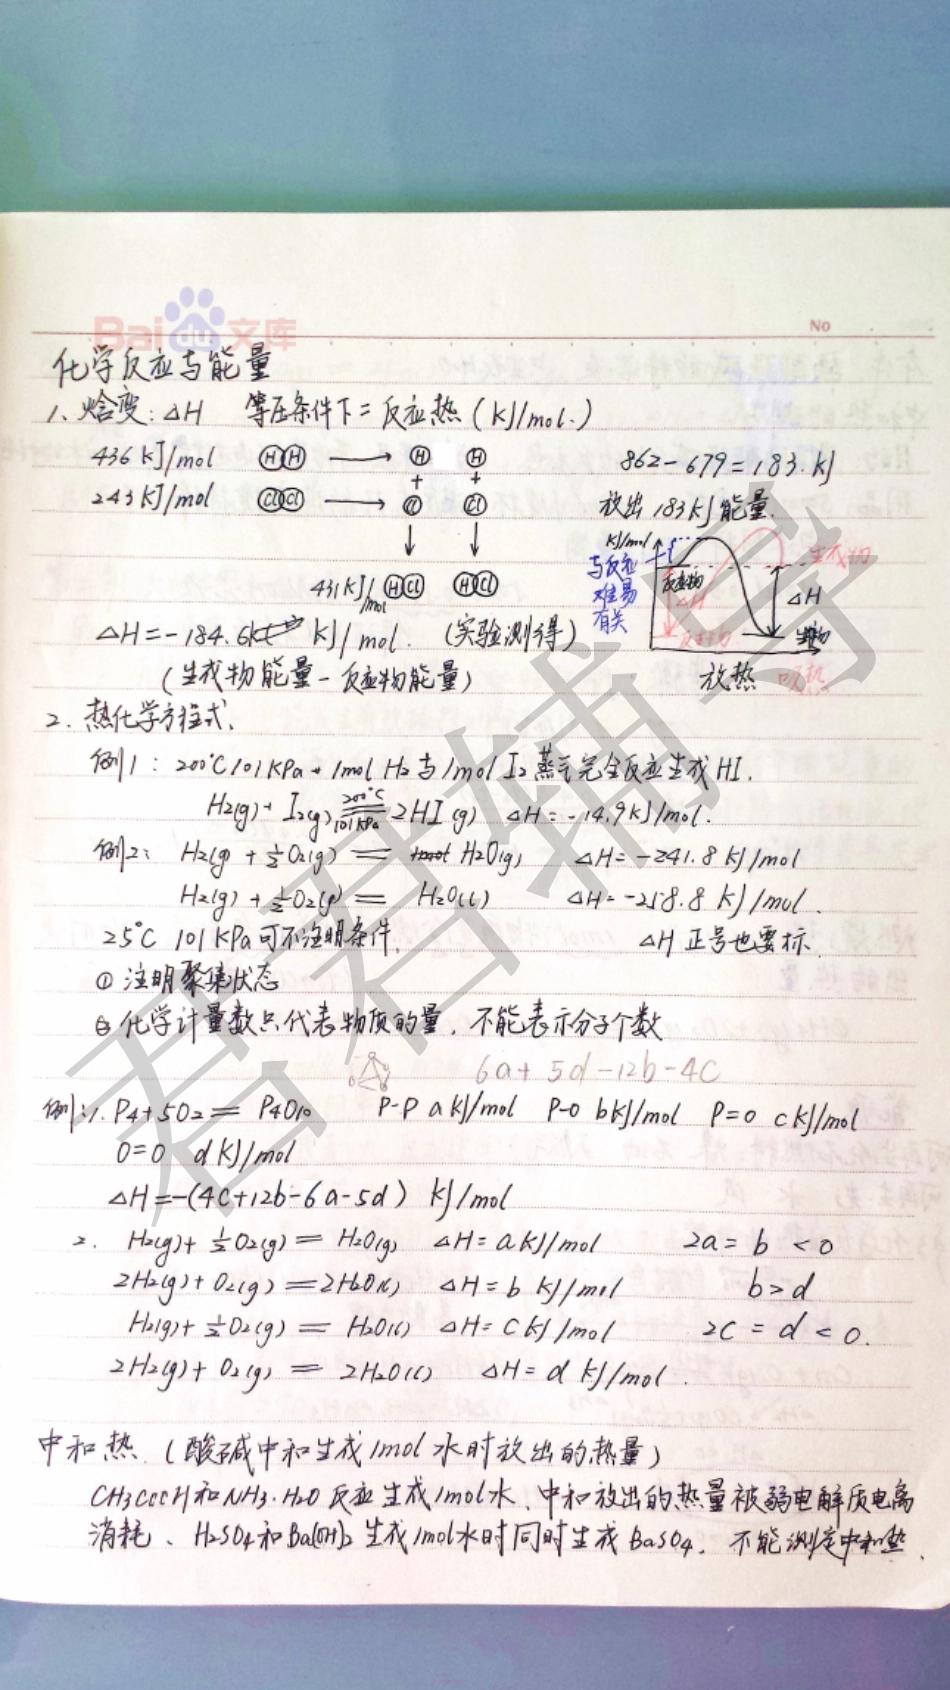 No
Bai du 文库
化学反应与能量
1、焓变:△H 等压条件下=反应热(KJ/mol.)
436 KJ/mol ⒽⒽ → Ⓗ Ⓗ 862-679=183.KJ
+ +
243 KJ/mol ClCl → Cl Cl 放出183KJ能量.
↓ ↓
431KJ/mol HCl HCl
KJ/mol
与反应
难易
有关
反应物
△H
反应物
生成物
△H
生成物
放热 吸热
△H=-184.6 KJ/mol. (实验测得)
(生成物能量-反应物能量)
2. 热化学方程式、
例1:200℃101KPa 1mol H2与1mol I2蒸气完全反应生成HI.
H2(g)+ I2(g) 200℃ ═ 101KPa 2HI(g) △H=-14.9KJ/mol.
例2: H2(g) + ½O2(g) = H2O(g) △H=-241.8 KJ/mol
H2(g) + ½O2(g) = H2O(l) △H=-258.8 KJ/mol.
25℃ 101KPa可不注明条件. △H正号也要标.
① 注明聚集状态
② 化学计量数只代表物质的量,不能表示分子个数
6a+5d-12b-4C
例:1. P4+5O2= P4O10 P-P a KJ/mol P-O bKJ/mol P=O cKJ/mol
O=O d KJ/mol
△H=-(4C+12b-6a-5d) KJ/mol
2. H2(g)+ ½O2(g) = H2O(g) △H=aKJ/mol 2a=b <0
2H2(g)+O2(g) =2H2O(g) △H=b KJ/mol b>d
H2(g)+½O2(g) = H2O(l) △H=CKJ/mol 2C=d<0.
2H2(g)+O2(g) = 2H2O(l) △H=d KJ/mol.
中和热.(酸碱中和生成1mol水时放出的热量)
CH3COOH和NH3·H2O反应生成1mol水、中和放出的热量被弱电解质电离
消耗、H2SO4和Ba(OH)2生成1mol水时同时生成BaSO4. 不能测定中和热.
君君辅导